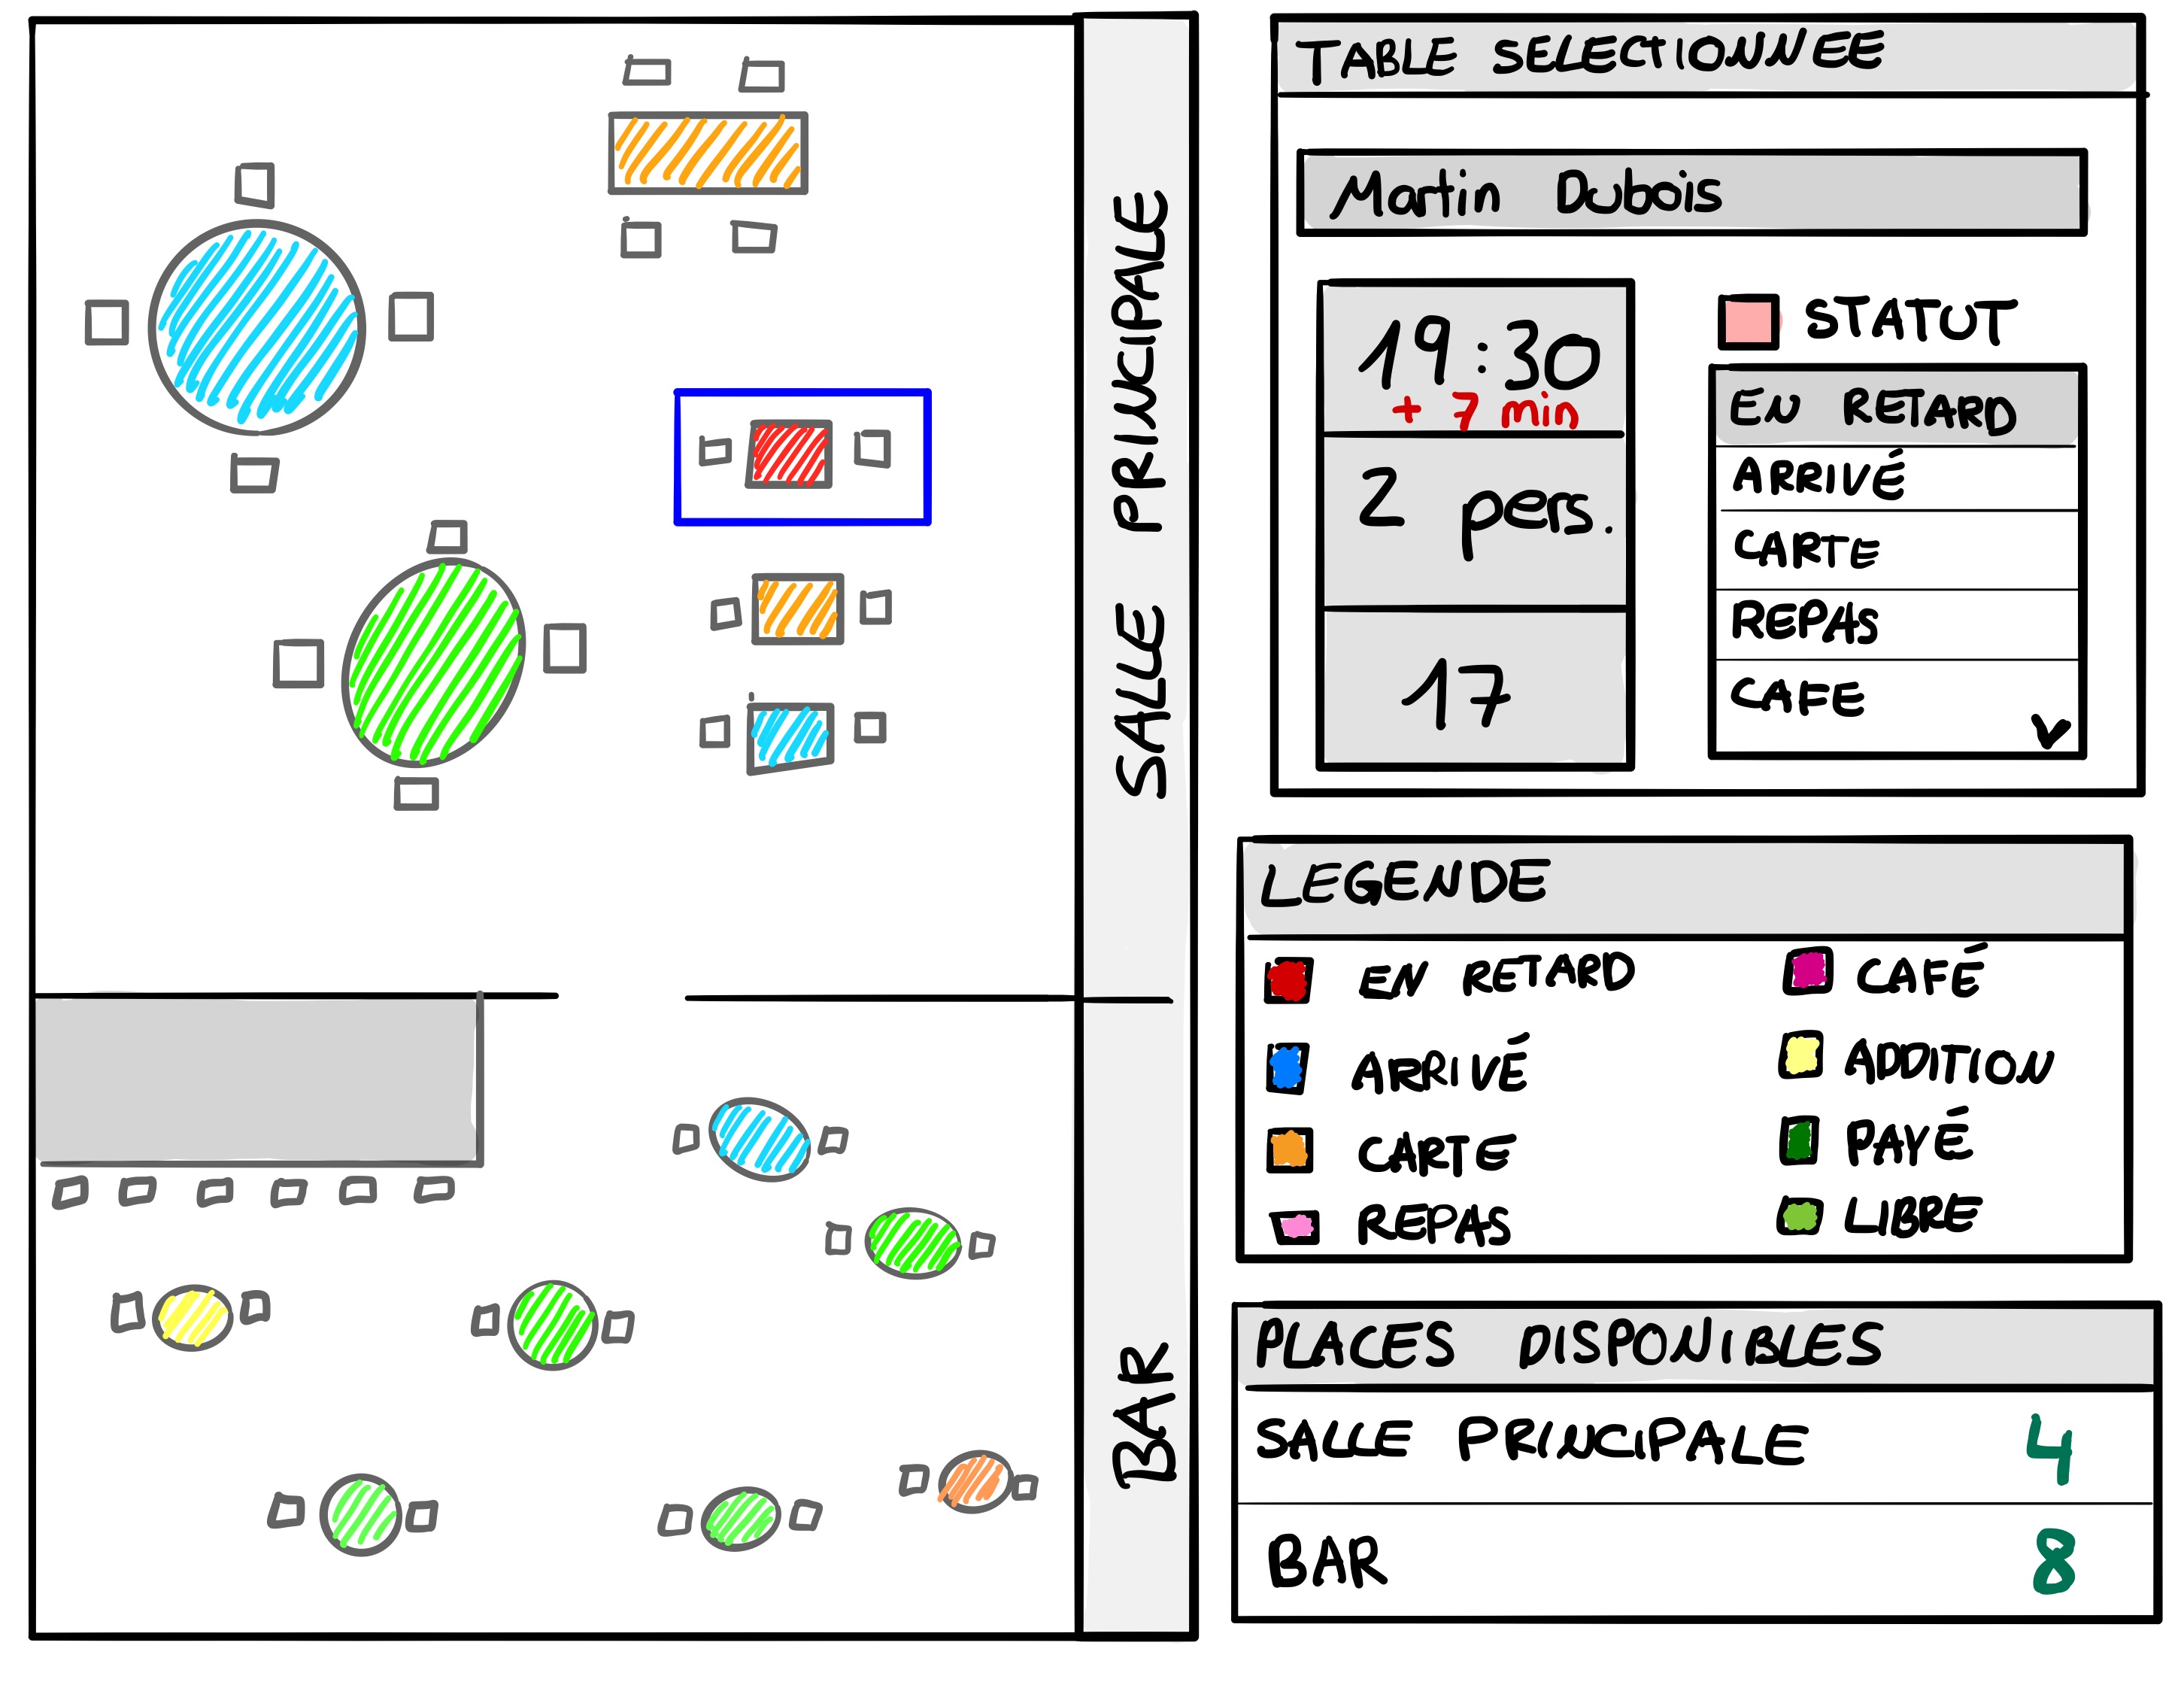 SALLE PRINCIPALE
BAR
TABLE SELECTIONNEE
Martin Dubois
19:30
+ 7 min
2 pers.
17
STATUT
EN RETARD
ARRIVÉ
CARTE
REPAS
CAFE
LEGENDE
EN RETARD
ARRIVÉ
CARTE
REPAS
CAFÉ
ADDITION
PAYÉ
LIBRE
PLACES DISPONIBLES
SALLE PRINCIPALE 4
BAR 8